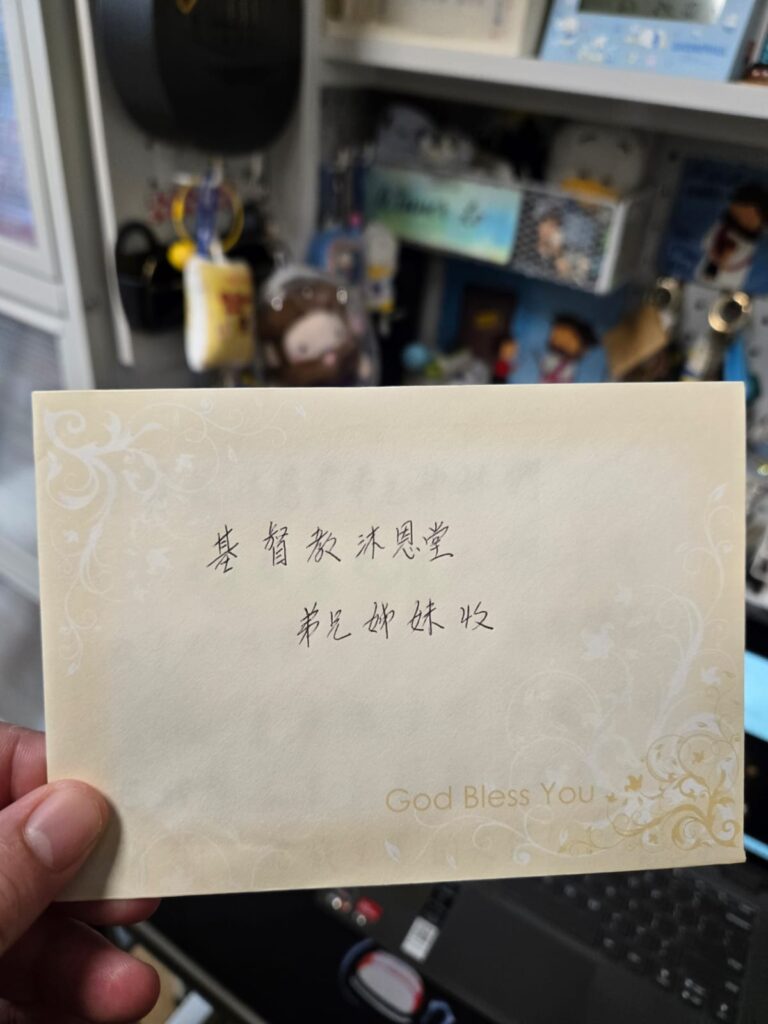 基督教沐恩堂
弟兄姊妹收
God Bless You